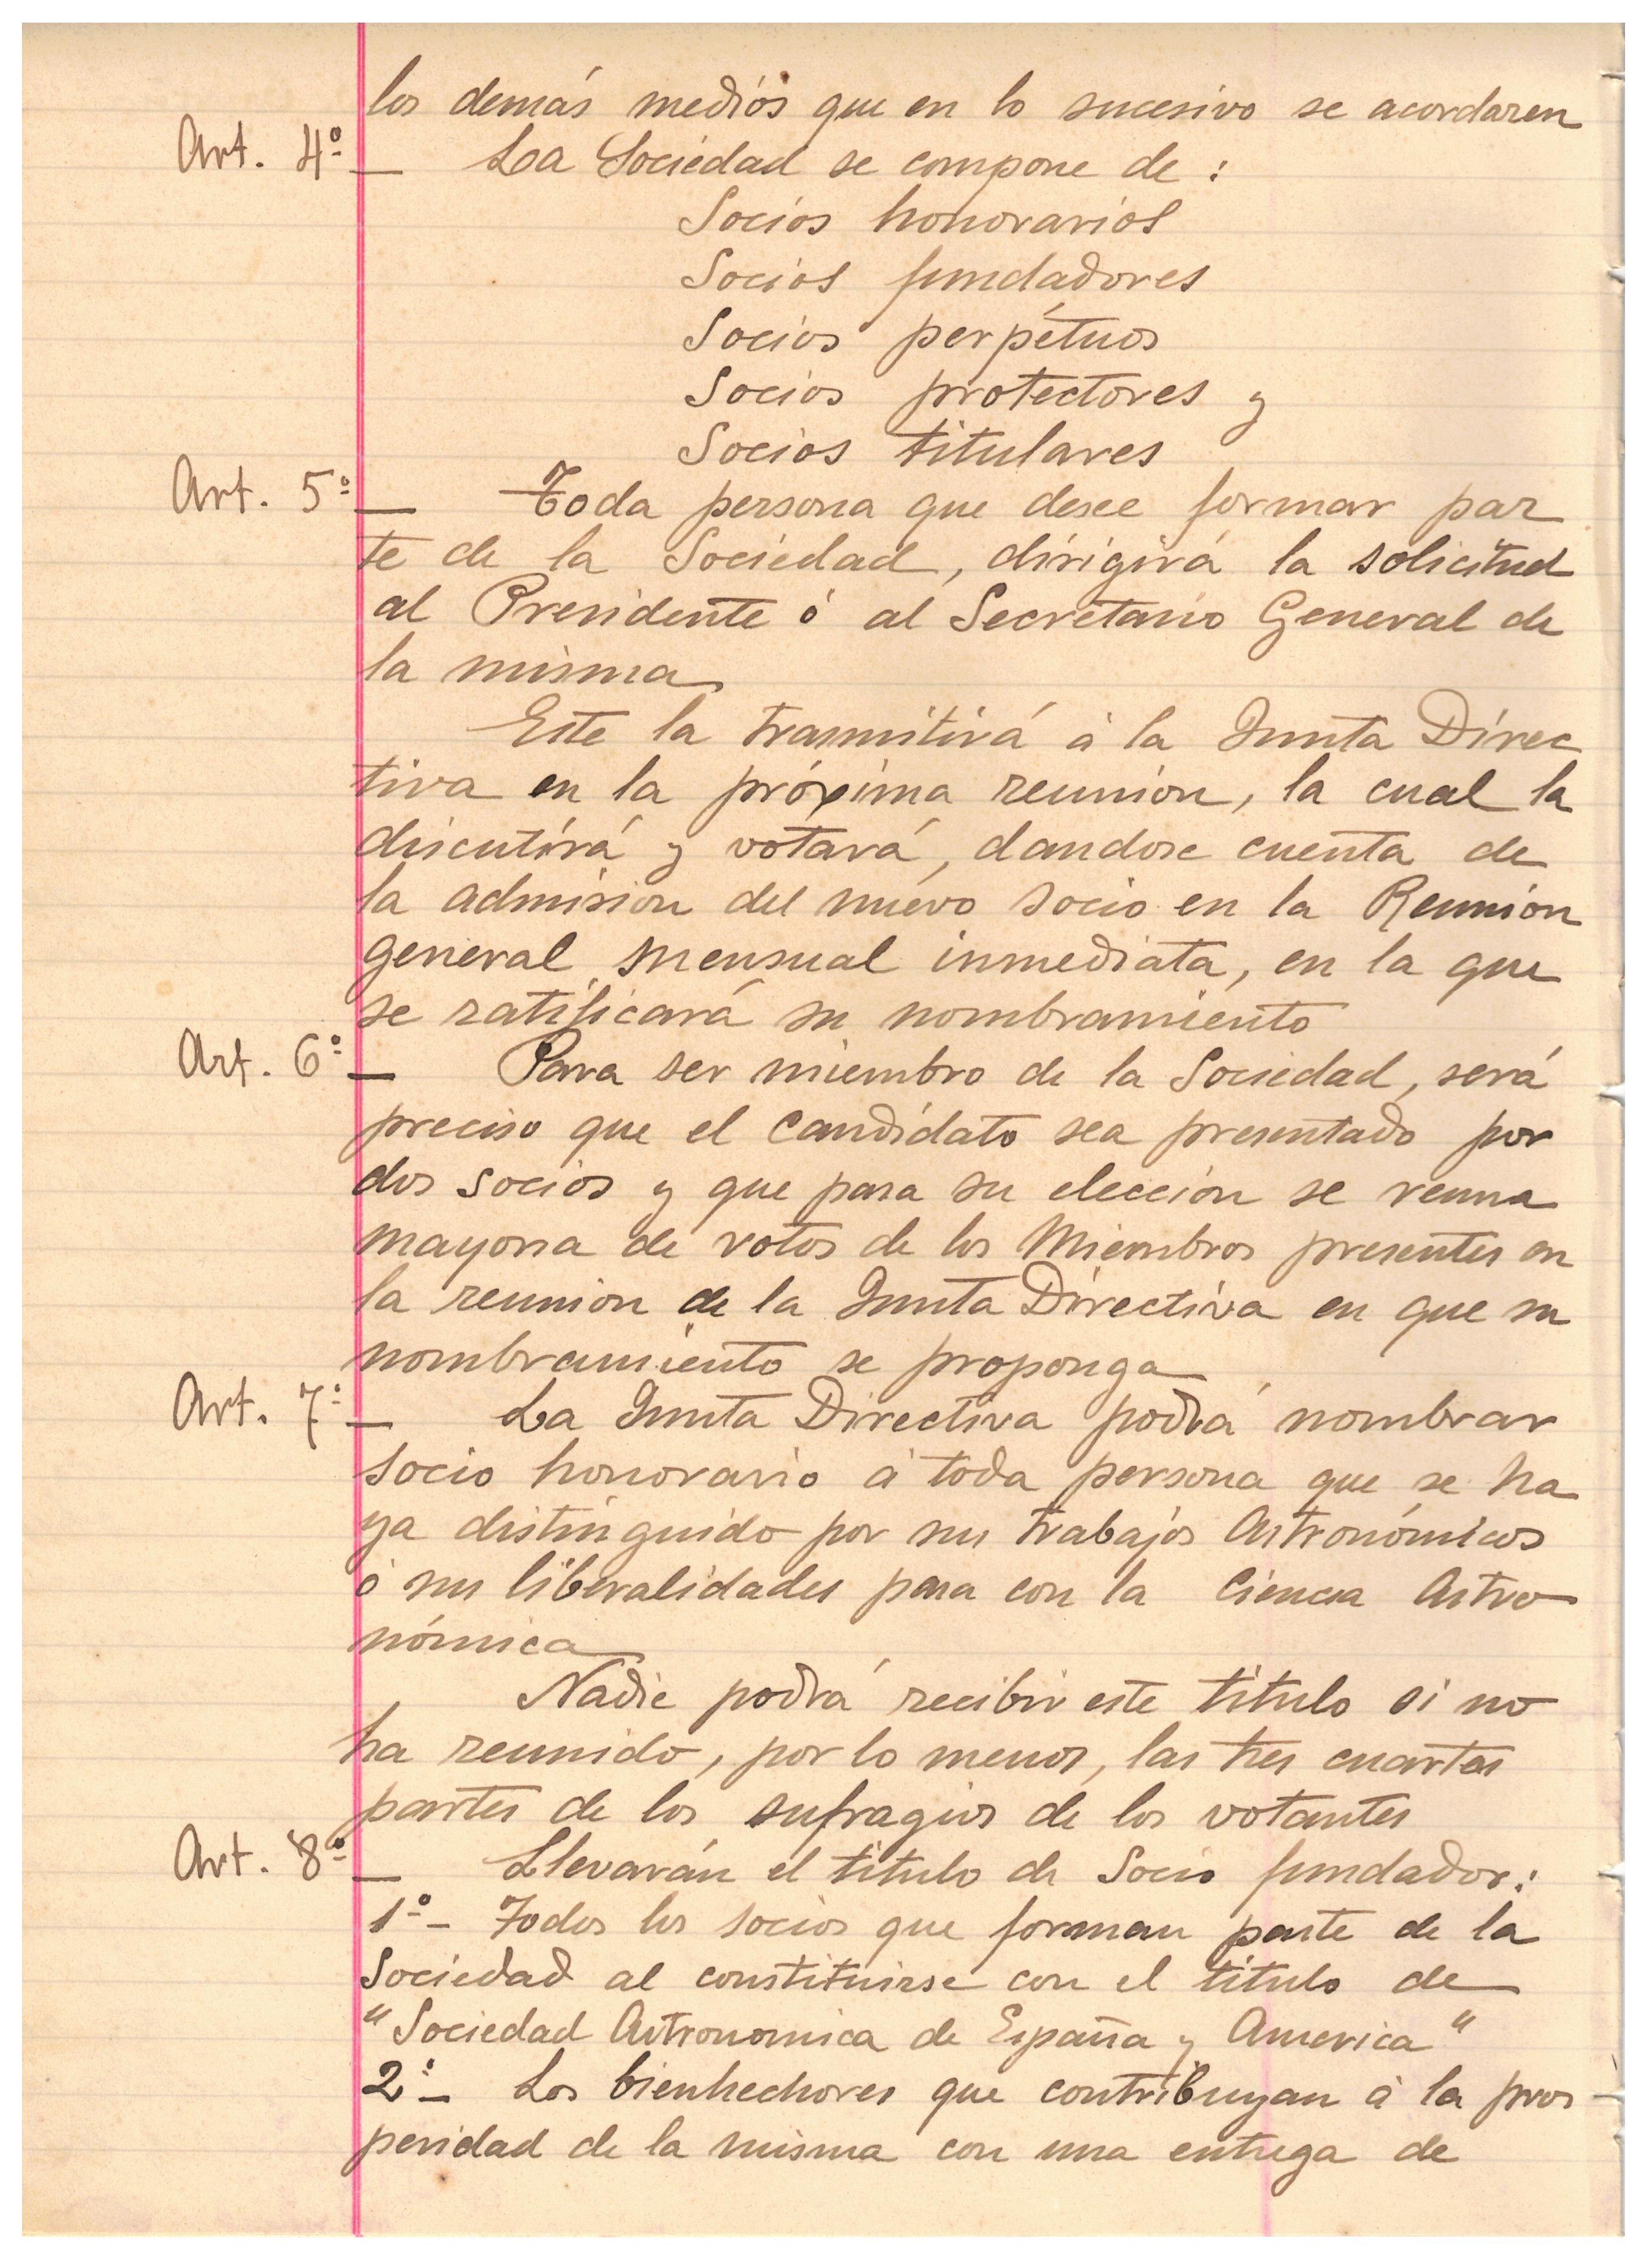 los demás medios que en lo sucesivo se acordaren
Art. 4º — La Sociedad se compone de :
Socios honorarios
Socios fundadores
Socios perpétuos
Socios protectores y
Socios titulares
Art. 5º — Toda persona que desee formar par
te de la Sociedad, dirigirá la solicitud
al Presidente ó al Secretario General de
la misma
Este la trasmitirá á la Junta Direc
tiva en la próxima reunion, la cual la
discutirá y votará, dandose cuenta de
la admision del nuevo socio en la Reunion
general mensual inmediata, en la que
se ratificará su nombramiento
Art. 6º — Para ser miembro de la Sociedad, será
preciso que el candidato sea presentado por
dos socios y que para su eleccion se reuna
mayoria de votos de los Miembros presentes en
la reunion de la Junta Directiva en que su
nombramiento se proponga
Art. 7º — La Junta Directiva podrá nombrar
socio honorario á toda persona que se ha
ya distinguido por sus trabajos Astronómicos
ó sus liberalidades para con la Ciencia Astro
nómica
Nadie podrá recibir este titulo si no
ha reunido, por lo menos, las tres cuartas
partes de los sufragios de los votantes
Art. 8º — Llevarán el titulo de Socio fundador:
1º — Todos los socios que forman parte de la
Sociedad al constituirse con el titulo de
"Sociedad Astronomica de España y America"
2º — Los bienhechores que contribuyan á la pros
peridad de la misma con una entrega de